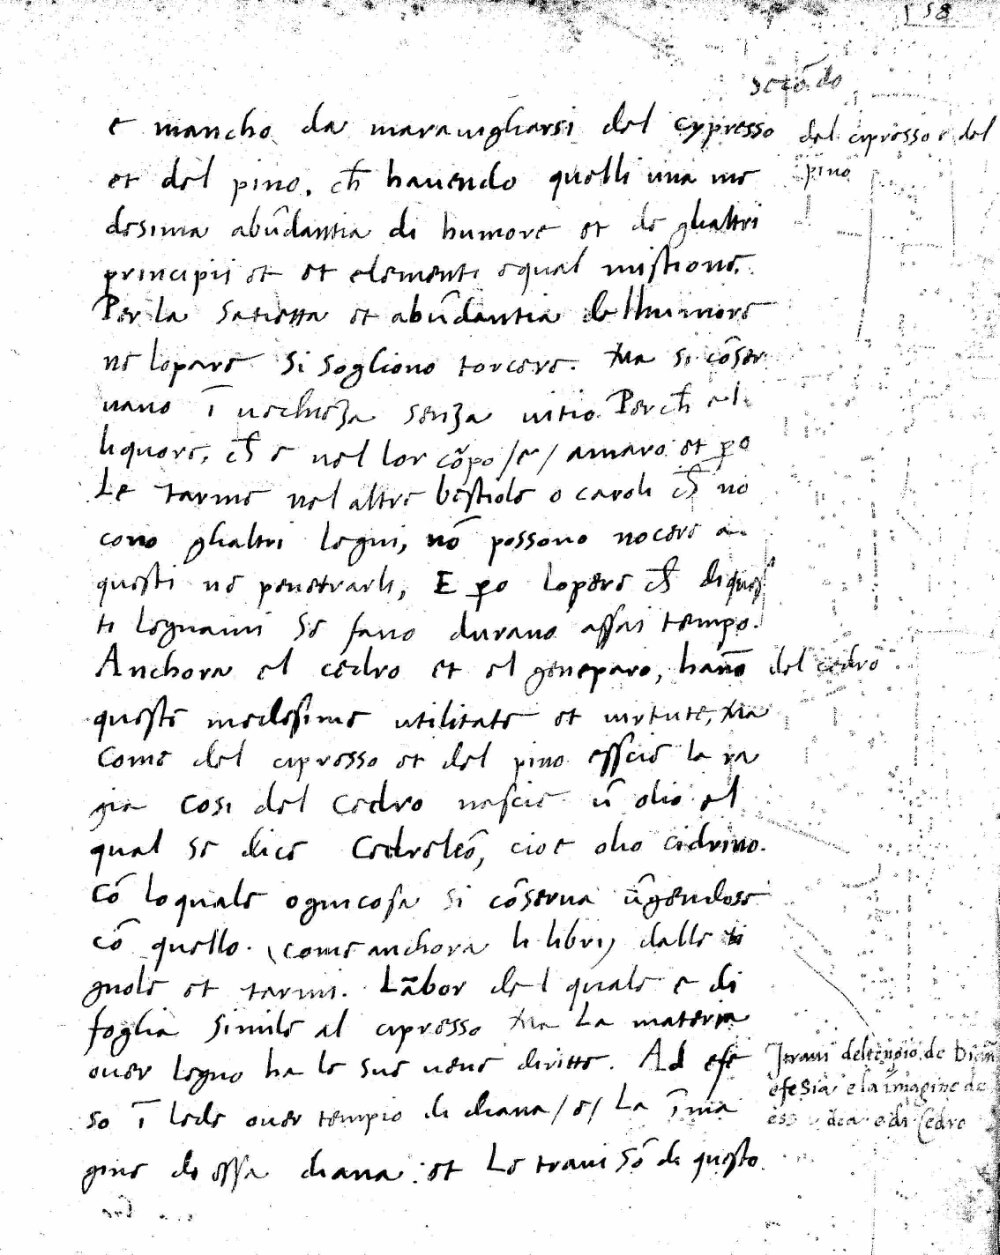 58
secōdo
e mancho da maravigliarsi del cypresso
del cipresso e del
pino
et del pino. ch̄ havendo quelli una me
desima abūdantia di humore et de glialtri
principii et et elementi equal mistione.
Per la Satietta et abūdantia delhumore
ne lopere si sogliono torcere. Ma se cōser
vano ī vechieza senza vitio Perch̄ el
liquore, ch̄ e nel lor cōrpo /e/ amaro et ꝑo
Le tarme nel altre bestiole o caroli ch̄ no
cono glialtri legni, nō possono nocere a
questi ne penetrarli, E ꝑo lopere ch̄ di ques
ti legnami se fano durano assai tempo.
Anchora el cedro et el geneparo, hanō
del cedro
queste medesime utilitate et virtute, Ma
Come del cipresso et del pino esscie la ra
gia cosi del Cedro nascie ū olio el
qual se dice Cedreleō, cioe olio cidrino.
cō loquale ognicosa si cōserva ūgendose
cō quello. (come anchora li libri) dalle ti
gnole et tarmi. Lābor del quale e di
foglia simile al cipresso Ma La materia
over legno ha le sue vene diritte. Ad efe
so ī lede over tempio di diana /e/ La īma
gine de essa diana: et Le travi sō di questo
Travi del tēpio de Diana
efesia e la imagine de
essa dea e di Cedro